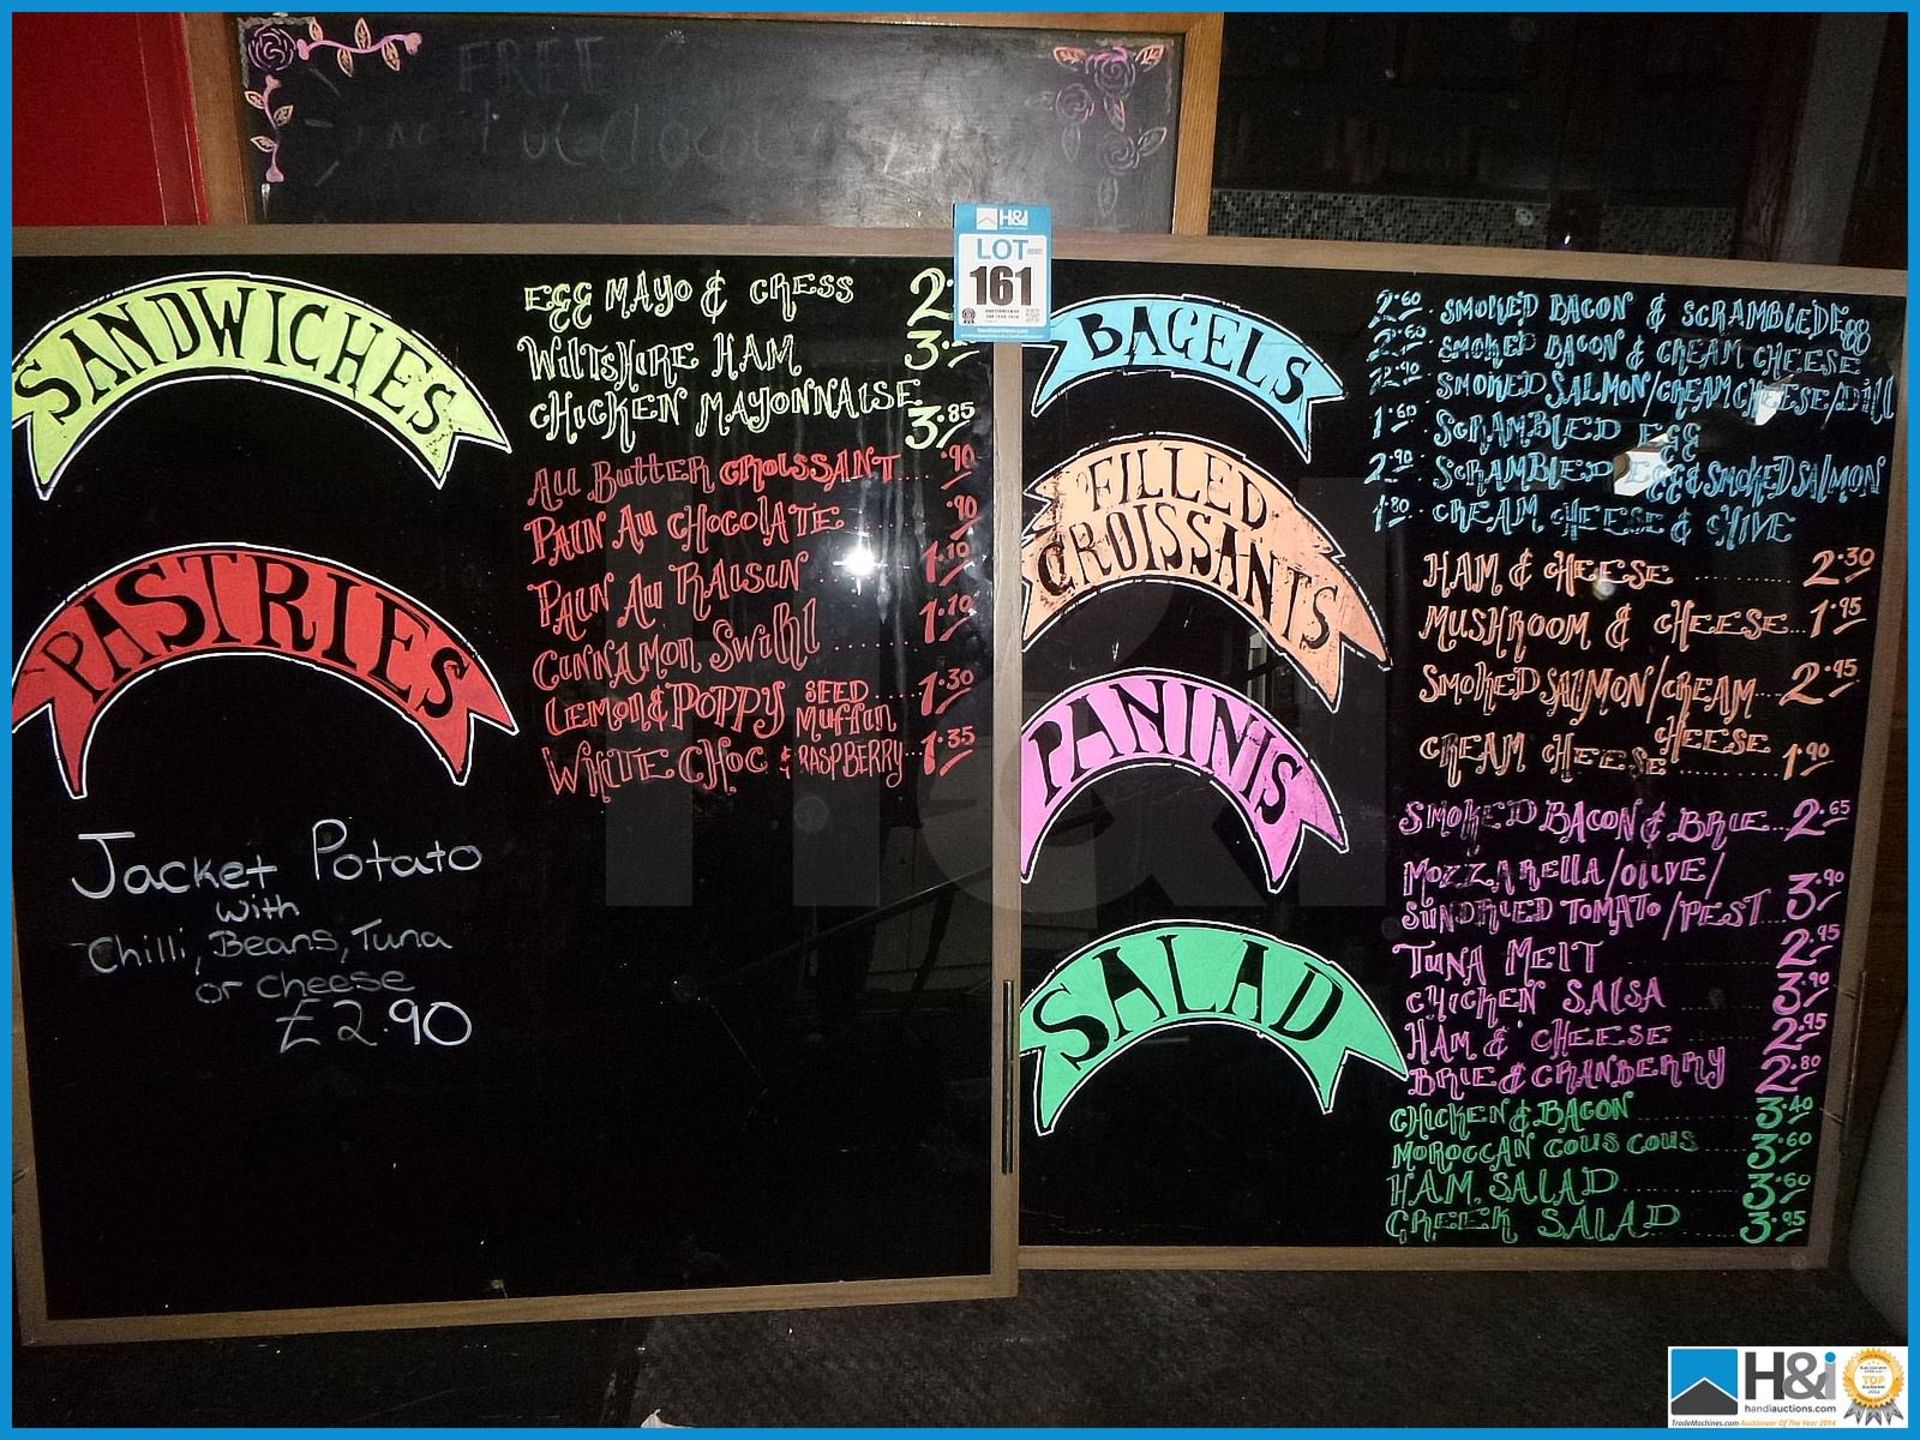 FREE
H&i
LOT
161
handiauctions.com
SANDWICHES
EGG MAYO & CRESS 2.
WILTSHIRE HAM 3.
CHICKEN MAYONNAISE 3.85
PASTRIES
ALL BUTTER CROISSANT.... .90
PAIN AU CHOCOLATE .90
PAIN AU RAISIN 1.10
CINNAMON SWIRL ...... 1.10
LEMON & POPPY SEED MUFFIN ..... 1.30
WHITE CHOC & RASPBERRY... 1.35
Jacket Potato
with
Chilli, Beans, Tuna
or cheese
£2.90
BAGELS
2.60 . SMOKED BACON & SCRAMBLED EGG
2.60 . SMOKED BACON & CREAM CHEESE
2.90 . SMOKED SALMON/CREAM CHEESE/DILL
1.60 . SCRAMBLED EGG
2.90 . SCRAMBLED EGG & SMOKED SALMON
1.80 . CREAM CHEESE & CHIVE
FILLED
CROISSANTS
HAM & CHEESE ........... 2.30
MUSHROOM & CHEESE... 1.95
SMOKED SALMON/CREAM CHEESE ... 2.95
CREAM CHEESE .......... 1.90
PANINIS
SMOKED BACON & BRIE... 2.65
MOZZARELLA/OLIVE/
SUNDRIED TOMATO/PEST... 3.90
TUNA MELT 2.95
CHICKEN SALSA ...... 3.90
HAM & CHEESE ...... 2.95
BRIE & CRANBERRY 2.80
SALAD
CHICKEN & BACON ........ 3.40
MOROCCAN COUS COUS 3.60
HAM SALAD ........ 3.60
GREEK SALAD ...... 3.95
H&i
H&i
handiauctions.com
TOP
TradeMachines.com Auctioneer Of The Year 2014